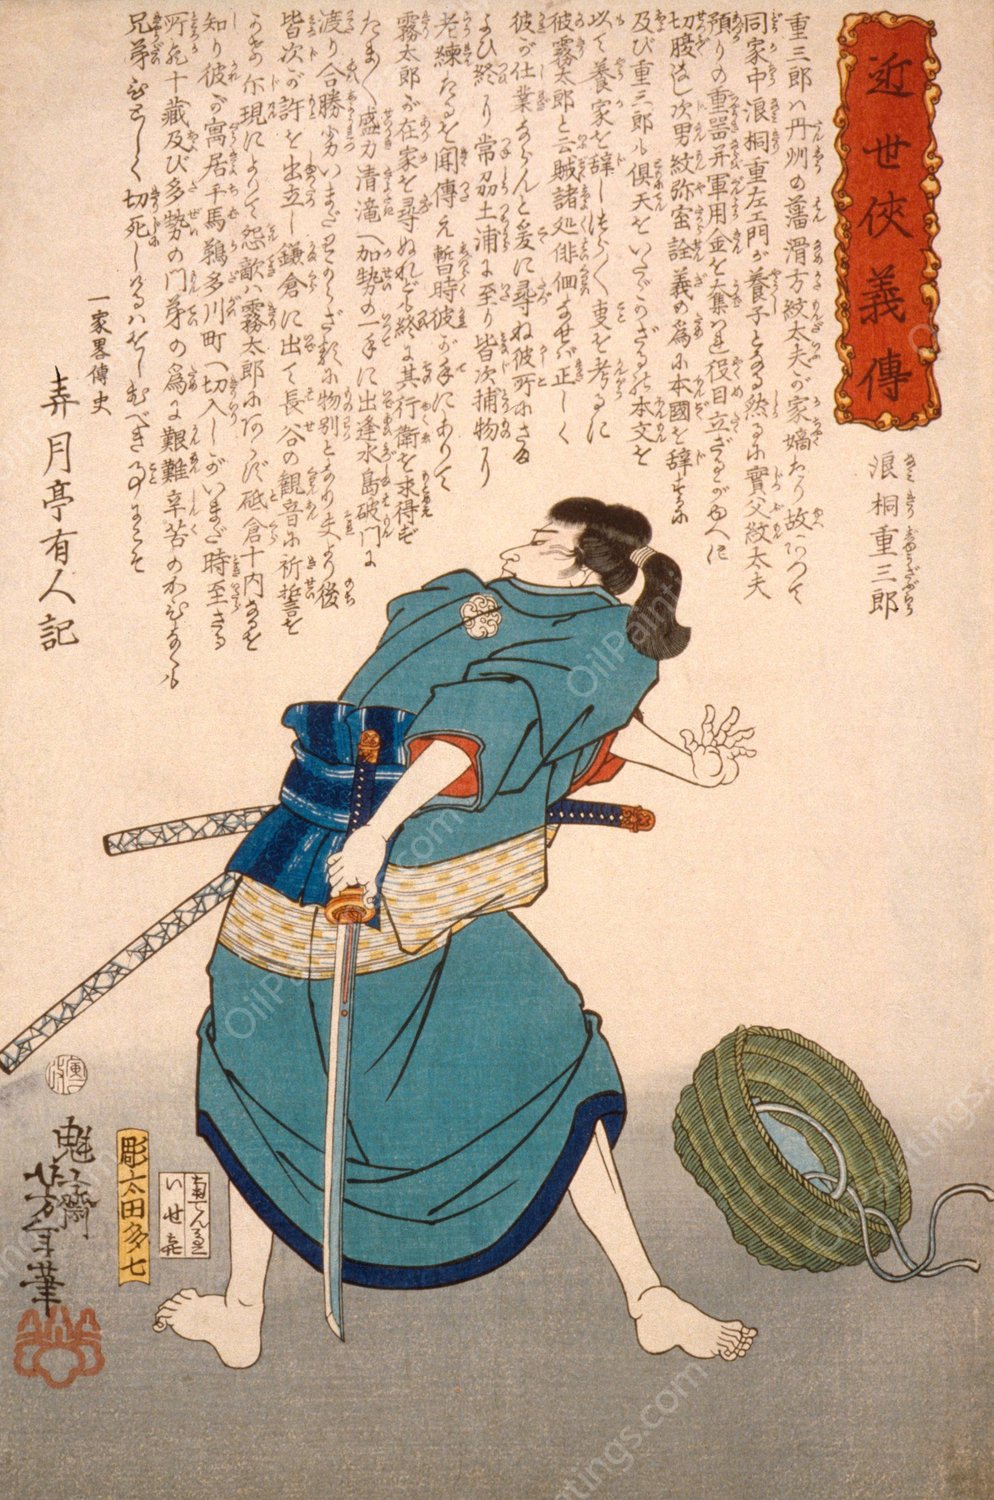 近世侠義傳
浪桐重三郎
重三郎ハ丹州の藩滑方紋太夫が家嫡たり故あつて
同家中浪桐重左エ門が養子となる然るに實父紋太夫
預りの重器并軍用金を奪はれ役目立ざるが為人に
切腹なし次男紋弥密詮義の為に本國を辞すに
及び重三郎も倶天をいたゞかざるの本文を
以て養家を辞しつらく事を考るに
彼霧太郎と云賊諸処徘徊なせば正しく
彼が仕業ならんと爰に尋ね彼所にさま
よひ終り常刕土浦に至り皆次捕物に
老練たるを聞傳え暫時彼が手にありて
霧太郎が在家を尋ぬれども終に其行衛を求得ず
たま〱盛力清滝へ加勢の一手に出逢水島破門に
渡り合勝
物別となり夫より後
皆次が許を出立し鎌倉に出て長谷の観音に祈誓を
現によりて怨敵ハ霧太郎にあらず砥倉十内なるを
知り彼が寓居千馬鵜多川町へ切入しがいまだ時至ざる
十藏及び多勢の門弟の為に艱難辛苦の
兄弟ひとしく切死しけるハをしむべき事にこそ
一家畧傳史
弄月亭有人記
魁斎芳年筆
彫太田多七
いせ㐂